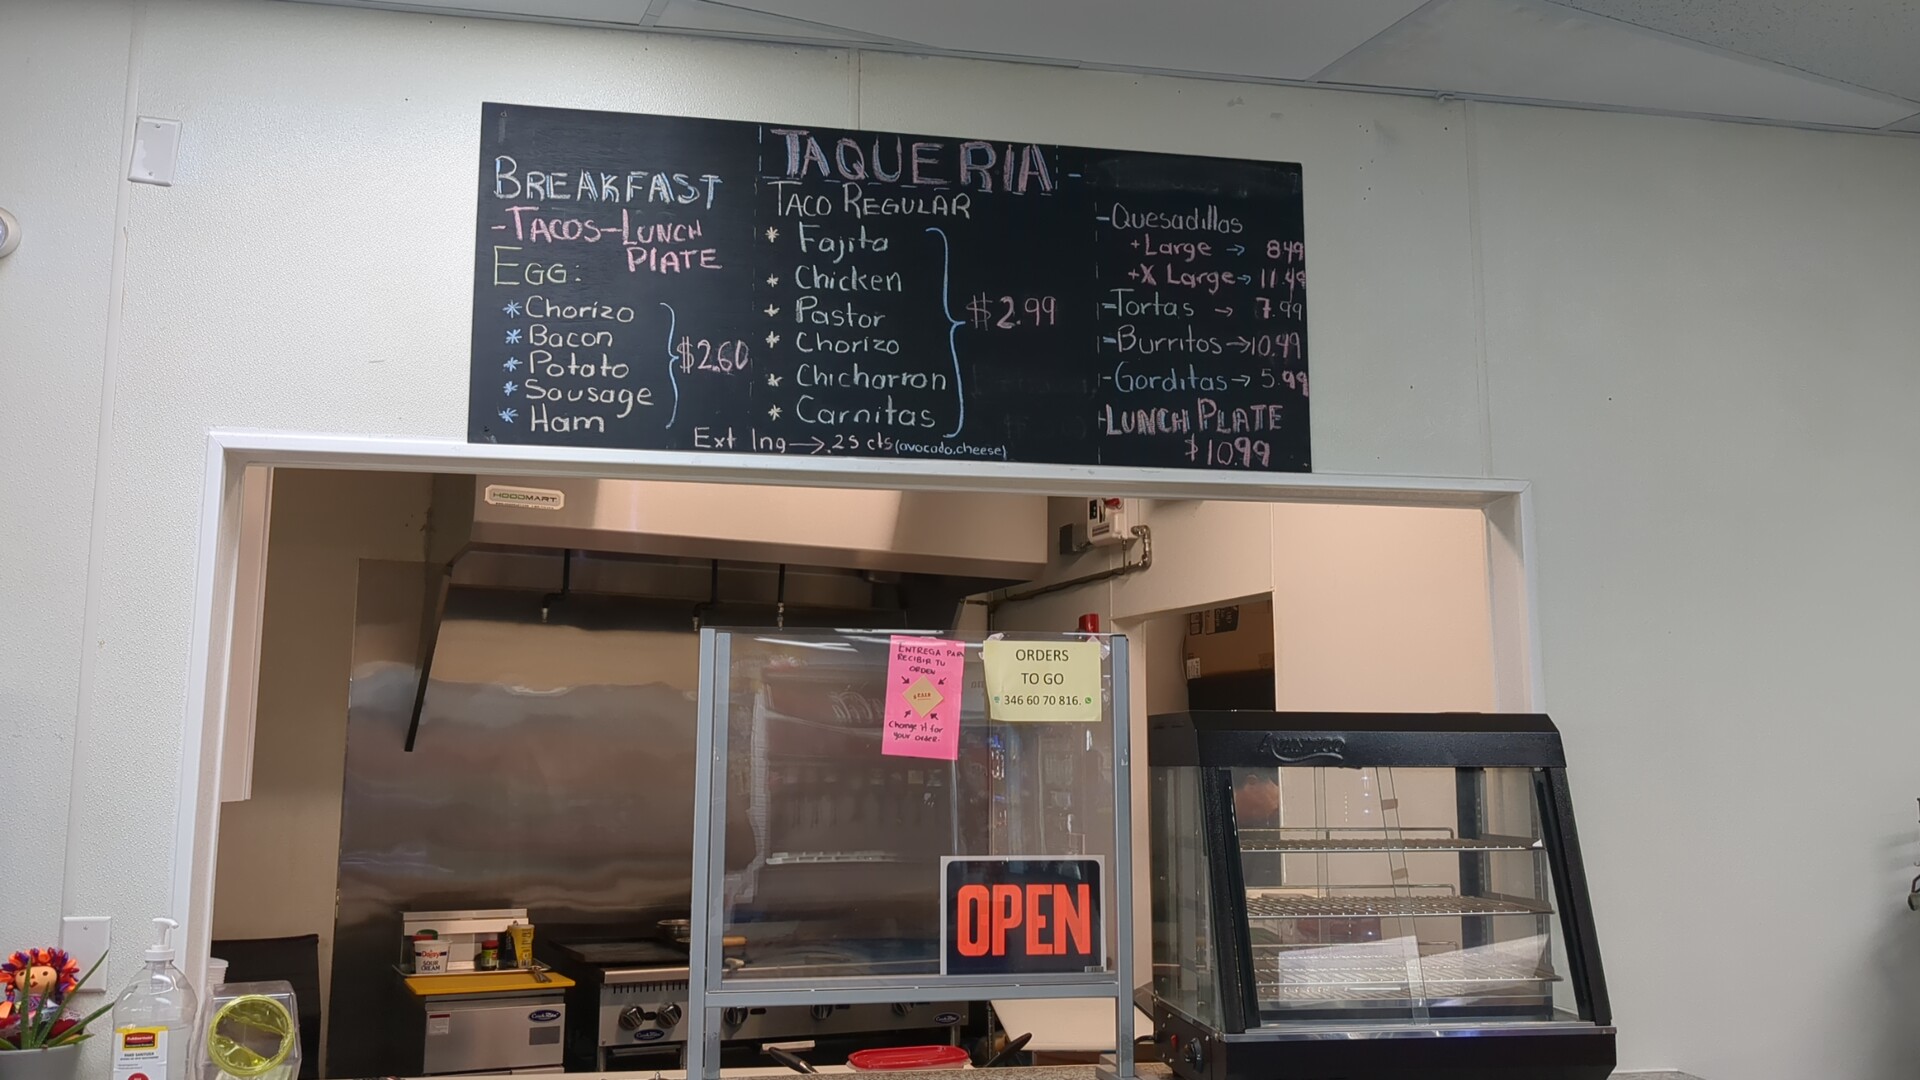 TAQUERIA
BREAKFAST
-TACOS-LUNCH
PLATE
EGG:
* Chorizo
* Bacon
* Potato
* Sausage
* Ham
$2.60
TACO REGULAR
* Fajita
* Chicken
* Pastor
* Chorizo
* Chicharron
* Carnitas
$2.99
Ext Ing → .25 cts (avocado, cheese)
-Quesadillas
+Large → 8.49
+X Large → 11.49
-Tortas → 7.99
-Burritos → 10.49
-Gorditas → 5.99
-LUNCH PLATE
$10.99
HOODMART
ENTREGA PARA
RECIBIR TU
ORDEN
Change it for
your order.
ORDERS
TO GO
346 60 70 816.
OPEN
Daisy
SOUR
CREAM
CookRite
CookRite
CookRite
Rubbermaid
HAND SANITIZER